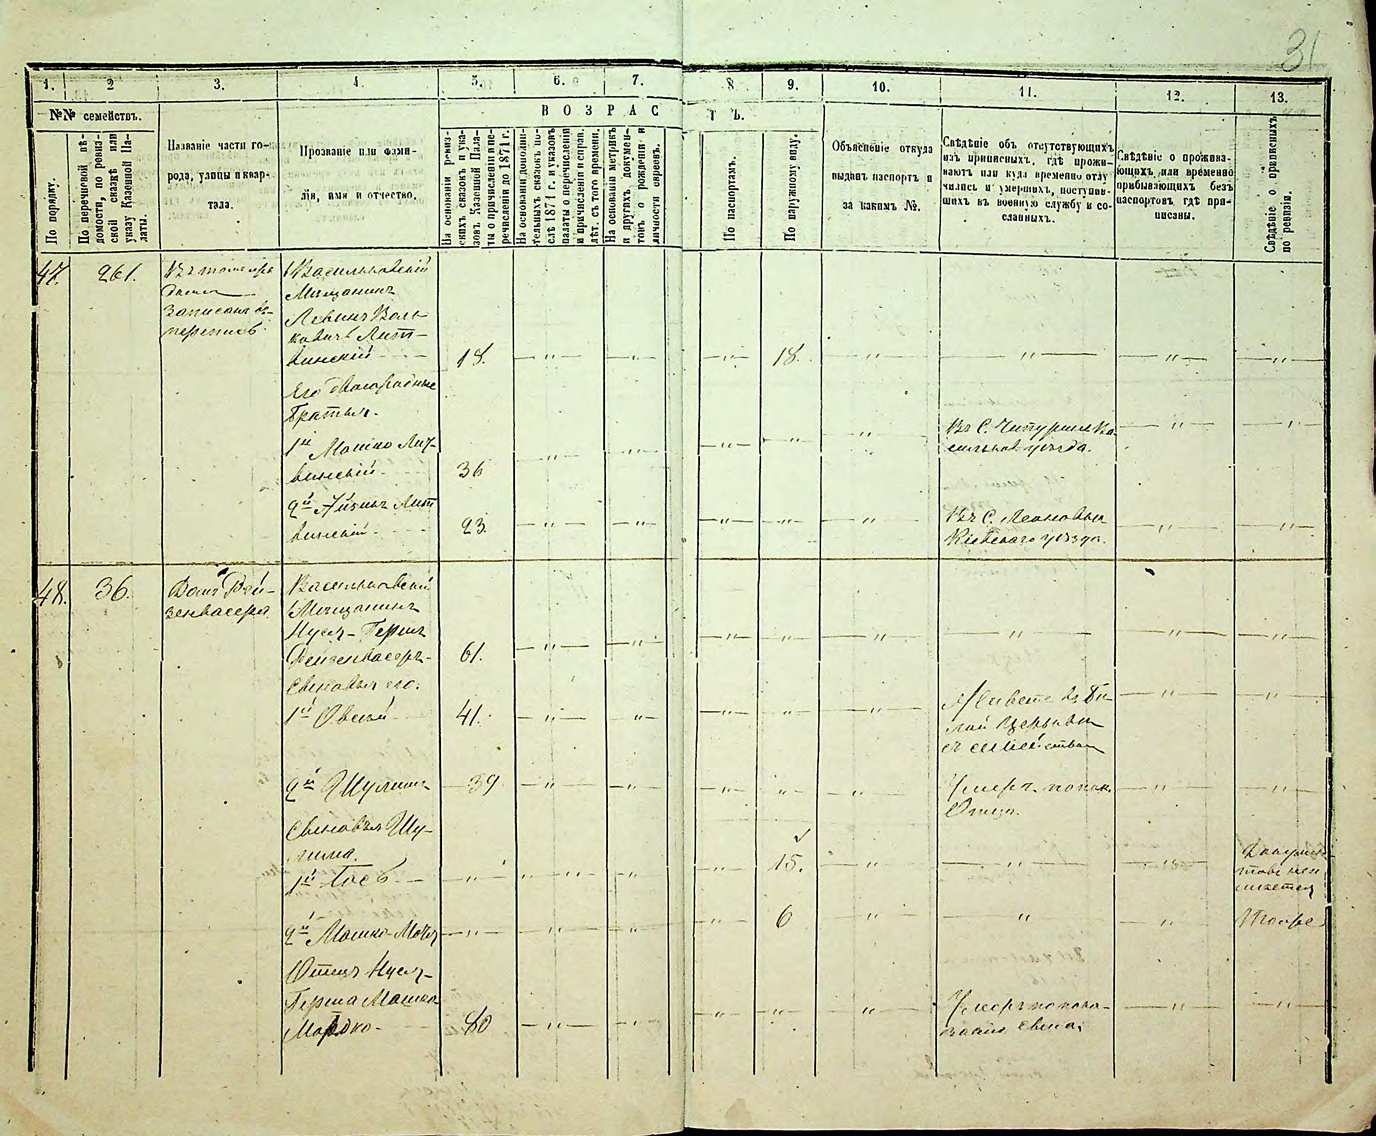 31
1. 2 3. 4. 5. 6. 7. 8 9. 10. 11. 12. 13.
№№ семействъ.
По порядку.
По перешевой вѣ-
домости, по ревиз-
ской сказкѣ или
указу Казенной Па-
латы.
Названіе части го-
рода, улицы и квар-
тала.
Прозваніе или фами-
лія, имя и отчество.
ВОЗРАСТЪ.
На основаніи ревиз-
скихъ сказокъ и ука-
зовъ Казенной Пала-
ты о причисленіи и пе-
речисленіи до 1871 г.
На основаніи дополни-
тельныхъ сказокъ по-
слѣ 1871 г. и указовъ
палаты о перечисленіи
и причисленіи и справ.
лѣт. съ того времени.
На основаніи метрикъ
и другихъ докумен-
товъ о рожденіи и
личности евреевъ.
По паспортамъ.
По наружному виду.
Объясненіе откуда
выданъ паспортъ и
за какимъ №.
Свѣдѣніе объ отсутствующихъ
изъ приписныхъ, гдѣ прожи-
ваютъ или куда временно отлу-
чились и умершихъ, поступив-
шихъ въ военную службу и со-
сланныхъ.
Свѣдѣніе о прожива-
ющихъ или временно
прибывающихъ безъ
паспортовъ гдѣ при-
писаны.
Свѣдѣніе о приписныхъ
по ревизіи.
47. 261. Въ томъ же
домѣ
записанъ въ
перепись.
Васильковскій
Мѣщанинъ
Левинъ Воль-
ковичъ Лит-
винскій 18. — " — — " — — " — 18. — " — — " — — " — — " —
Его двоюродные
Братья.
1й Мошко Лит-
винскій 36 — " — — " — — " — " — " — Въ С. Чипурина Ва-
сильков. уѣзда. — " — "
2й Айзикъ Лит
винскій 23. — " — — " — — " — — " — " Въ С. Леоновки
Кіевскаго уѣзда. — " — — " —
48. 36. Домъ Рей-
зенвасера.
Васильковскій
Мѣщанинъ
Нусь-Герш
Рейзенвасеръ 61. — " — — " — — " — — " — — " — — " — — " — — " —
Сыновья его.
1й Овсей 41. — " — " — — " — " — — " — Живетъ въ Бѣ-
лой Церкви
съ семействомъ — " — "
2й Шулимъ 39 — " — — " — — " — " — " — Умеръ показ.
Отца. — " — — " —
Сыновья Шу-
лима.
1й Гось — " — — " — — " — 15. — " — — " — Докумен-
товъ неи
мѣется
2й Мошко-Мотя — " — — " — " — " — 6 — " — " " Тоже
Отецъ Нусь-
Герша Мошко
Мордко 80 — " — — " — — " — — " — — " — Умеръ по пока-
занію Сына. — " — — " —